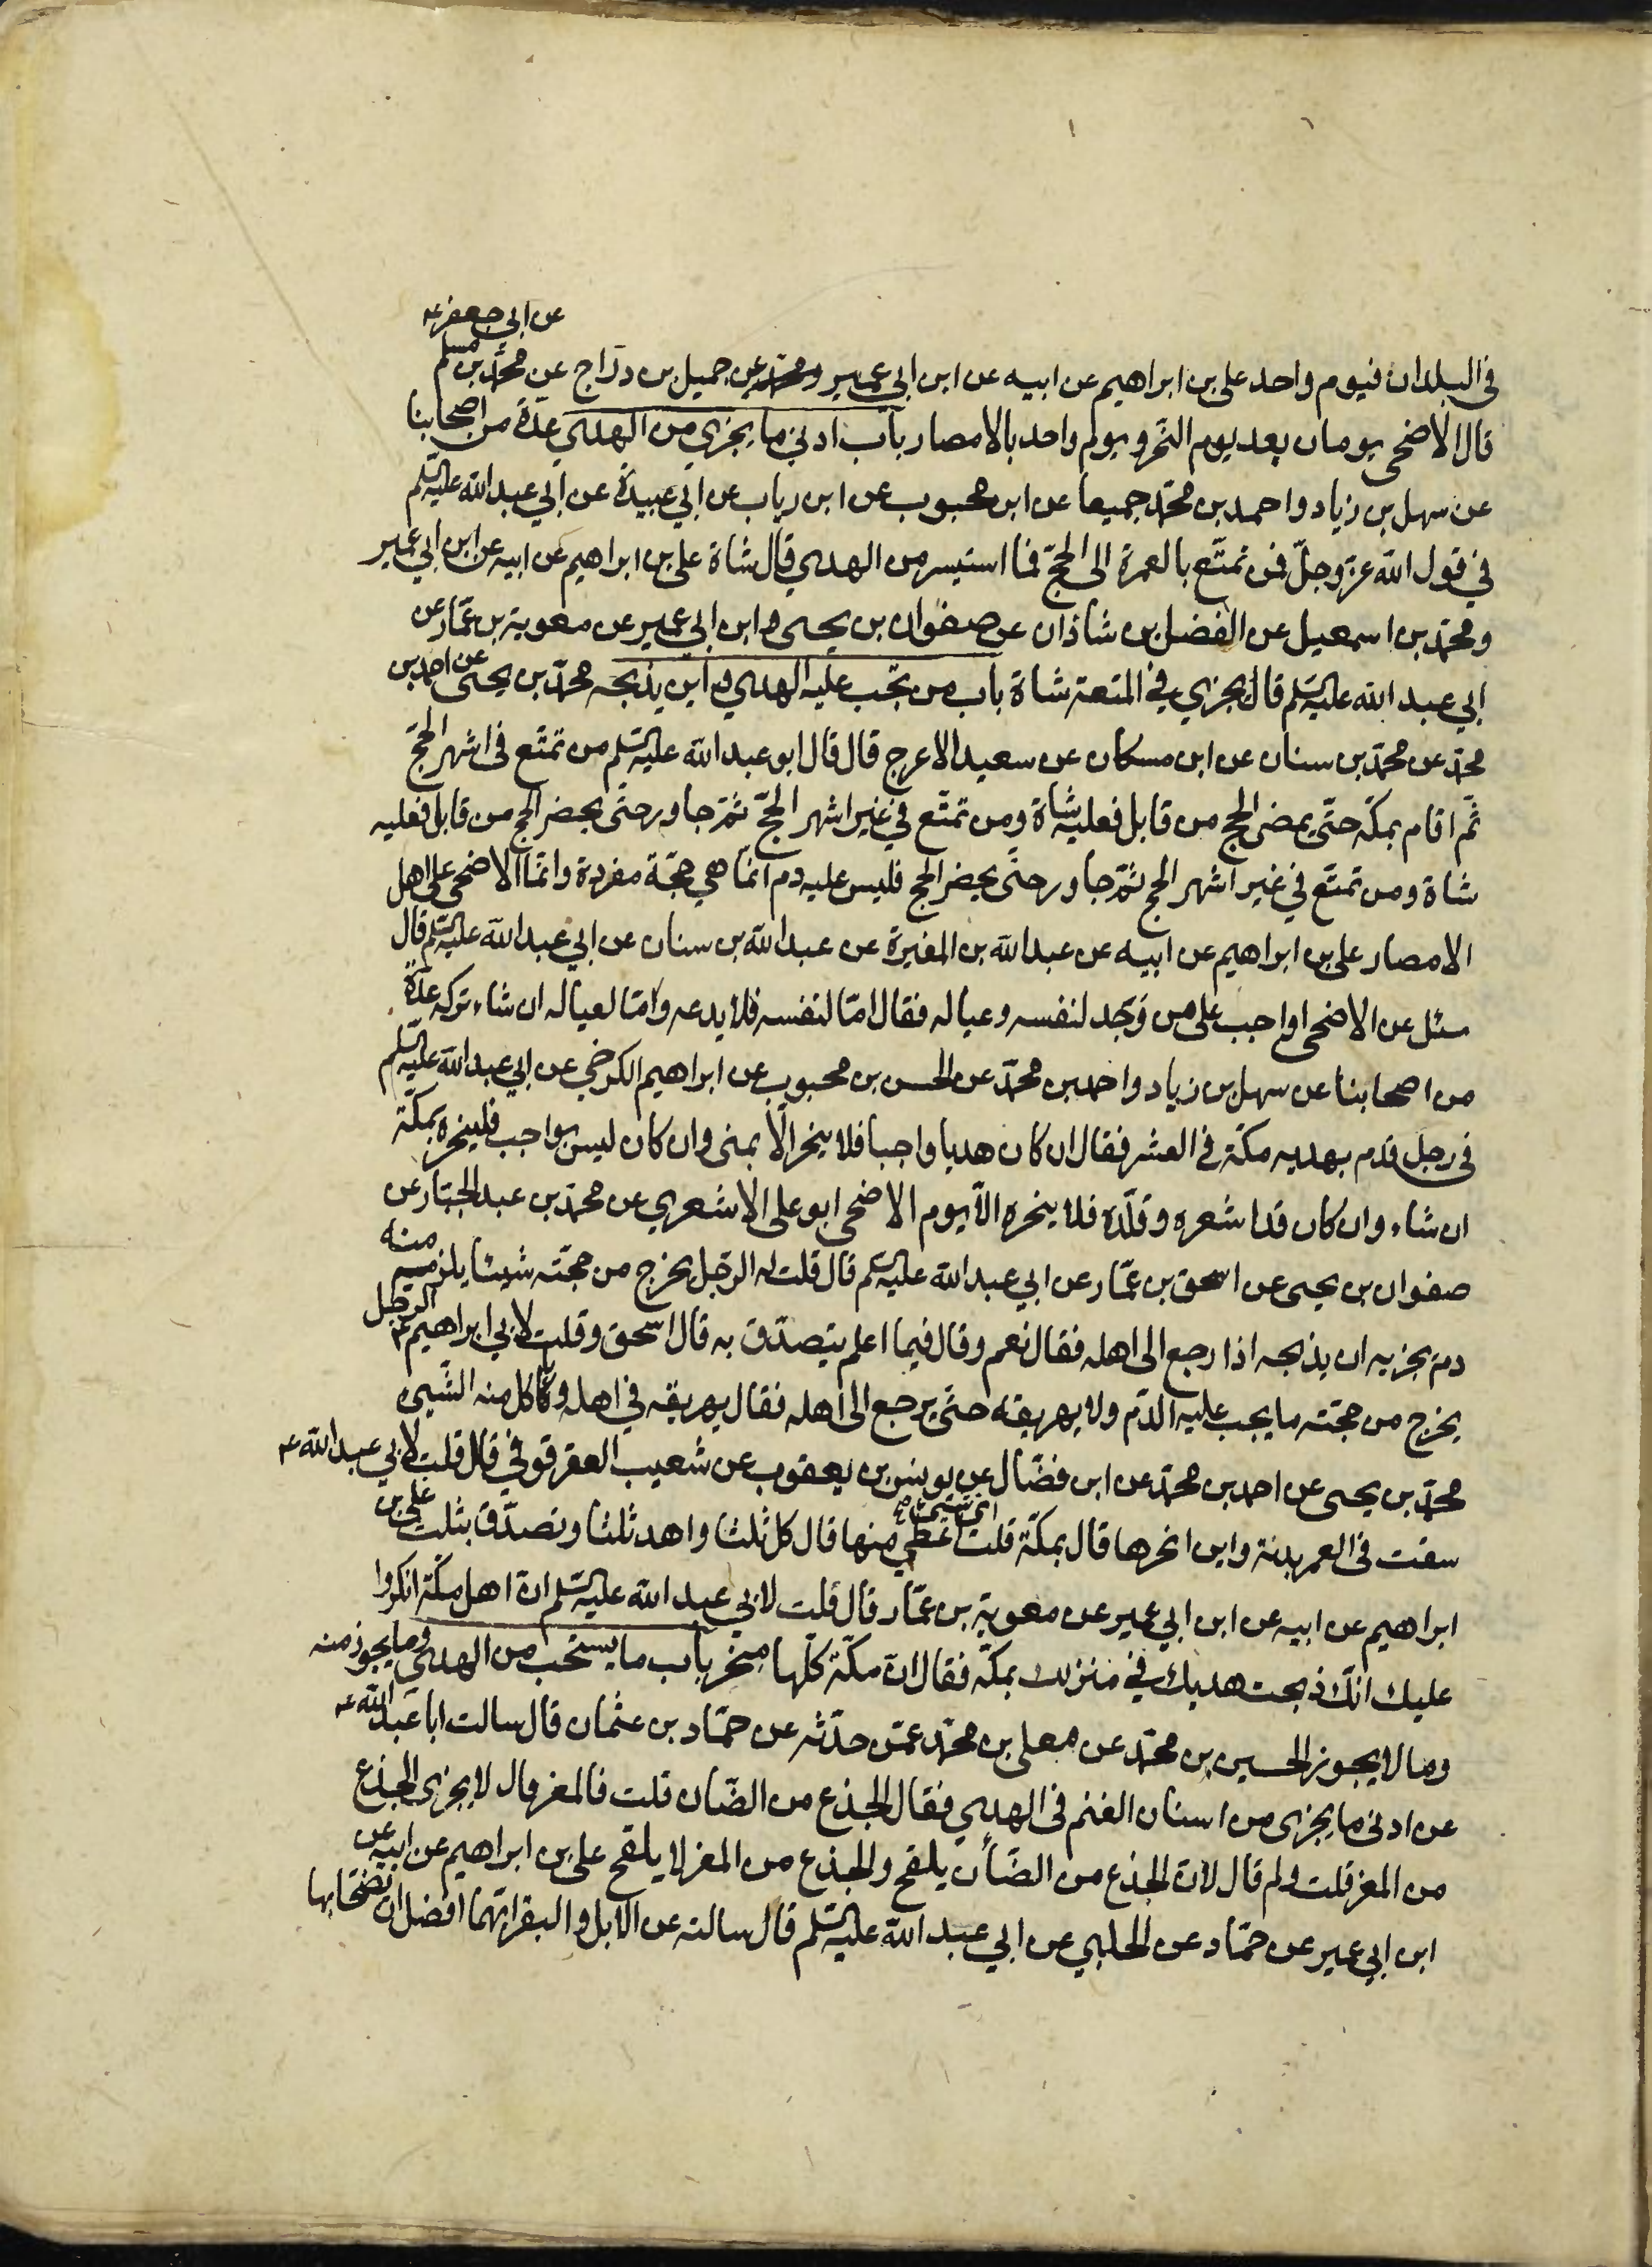 عن ابي جعفر ع
في البلدان فيوم واحد علي بن ابراهيم عن ابيه عن ابن ابي عمير ومحمد عن جميل بن دراج عن محمد بن مسلم
قال الاضحى يومان بعد يوم النحر ويوم واحد بالامصار باب ادنى ما يجزي من الهدي عدة من اصحابنا
عن سهل بن زياد واحمد بن محمد جميعا عن ابن محبوب عن ابن رياب عن ابي عبيدة عن ابي عبد الله عليه السلم
في قول الله عز وجل فمن تمتع بالعمرة الى الحج فما استيسر من الهدي قال شاة علي بن ابراهيم عن ابيه عن ابن ابي عمير
ومحمد بن اسمعيل عن الفضل بن شاذان عن صفوان بن يحيى وابن ابي عمير عن معوية بن عمار عن
ابي عبد الله عليه السلم قال يجزي في المتعة شاة باب من يجب عليه الهدي واين يذبحه محمد بن يحيى عن احمد بن
محمد عن محمد بن سنان عن ابن مسكان عن سعيد الاعرج قال قال ابو عبد الله عليه السلم من تمتع في اشهر الحج
ثم اقام بمكة حتى يحضر الحج من قابل فعليه شاة ومن تمتع في غير اشهر الحج ثم جاور حتى يحضر الحج من قابل فعليه
شاة ومن تمتع في غير اشهر الحج ثم جاور حتى يحضر الحج فليس عليه دم انما هي حجة مفردة وانما الاضحى على اهل
الامصار علي بن ابراهيم عن ابيه عن عبد الله بن المغيرة عن عبد الله بن سنان عن ابي عبد الله عليه السلم قال
سئل عن الاضحى اواجب على من وجد لنفسه وعياله فقال اما لنفسه فلا يدعه واما لعياله ان شاء تركه عدة
من اصحابنا عن سهل بن زياد واحمد بن محمد عن الحسن بن محبوب عن ابراهيم الكرخي عن ابي عبد الله عليه السلم
في رجل قدم بهديه مكة في العشر فقال ان كان هديا واجبا فلا ينحر الا بمنى وان كان ليس بواجب فلينحره بمكة
ان شاء وان كان قد اشعره وقلده فلا ينحره الا يوم الاضحى ابو علي الاشعري عن محمد بن عبد الجبار عن
صفوان بن يحيى عن اسحق بن عمار عن ابي عبد الله عليه السلم قال قلت له الرجل يخرج من حجته شيئا يلزمه منه
دم يجزيه ان يذبحه اذا رجع الى اهله فقال نعم وقال فيما اعلم يتصدق به قال اسحق وقلت لابي ابراهيم ع الرجل
يخرج من حجته ما يجب عليه الدم ولا يهريقه حتى يرجع الى اهله فقال يهريقه في اهله وياكل منه الشيئ
محمد بن يحيى عن احمد بن محمد عن ابن فضال عن يونس بن يعقوب عن شعيب العقرقوفي قال قلت لابي عبد الله ع
سقت في العمر بدنة واين انحرها قال بمكة قلت اي شيئ اعطي منها قال كل ثلثا واهد ثلثا وتصدق بثلث علي بن
ابراهيم عن ابيه عن ابن ابي عمير عن معوية بن عمار قال قلت لابي عبد الله عليه السلم ان اهل مكة انكروا
عليك انك ذبحت هديك في منزلك بمكة فقال ان مكة كلها منحر باب ما يستحب من الهدي وما يجوز منه
وما لا يجوز الحسين بن محمد عن معلى بن محمد عمن حدثه عن حماد بن عثمان قال سالت ابا عبد الله ع
عن ادنى ما يجزى من اسنان الغنم في الهدي فقال الجذع من الضان قلت فالمعز قال لا يجزى الجذع
من المعز قلت ولم قال لان الجذع من الضأن يلقح والجذع من المعز لا يلقح علي بن ابراهيم عن ابيه عن
ابن ابي عمير عن حماد عن الحلبي عن ابي عبد الله عليه السلم قال سالته عن الابل والبقر ايهما افضل ان يضحى بها